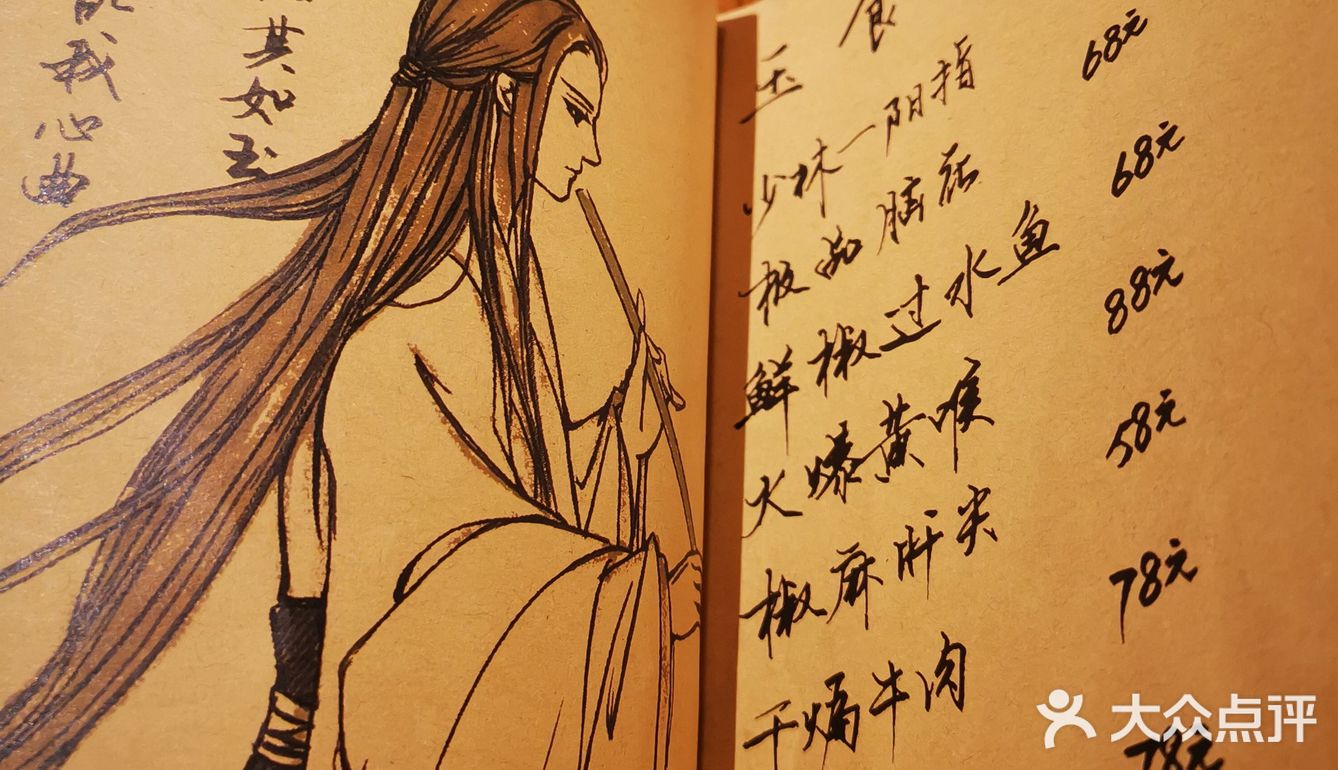 其如玉
我心曲
玉食
少林一阳指 68元
极品脑花 68元
鲜椒过水鱼 88元
火爆黄喉 58元
椒麻肝尖 78元
干煸牛肉 78元
大众点评